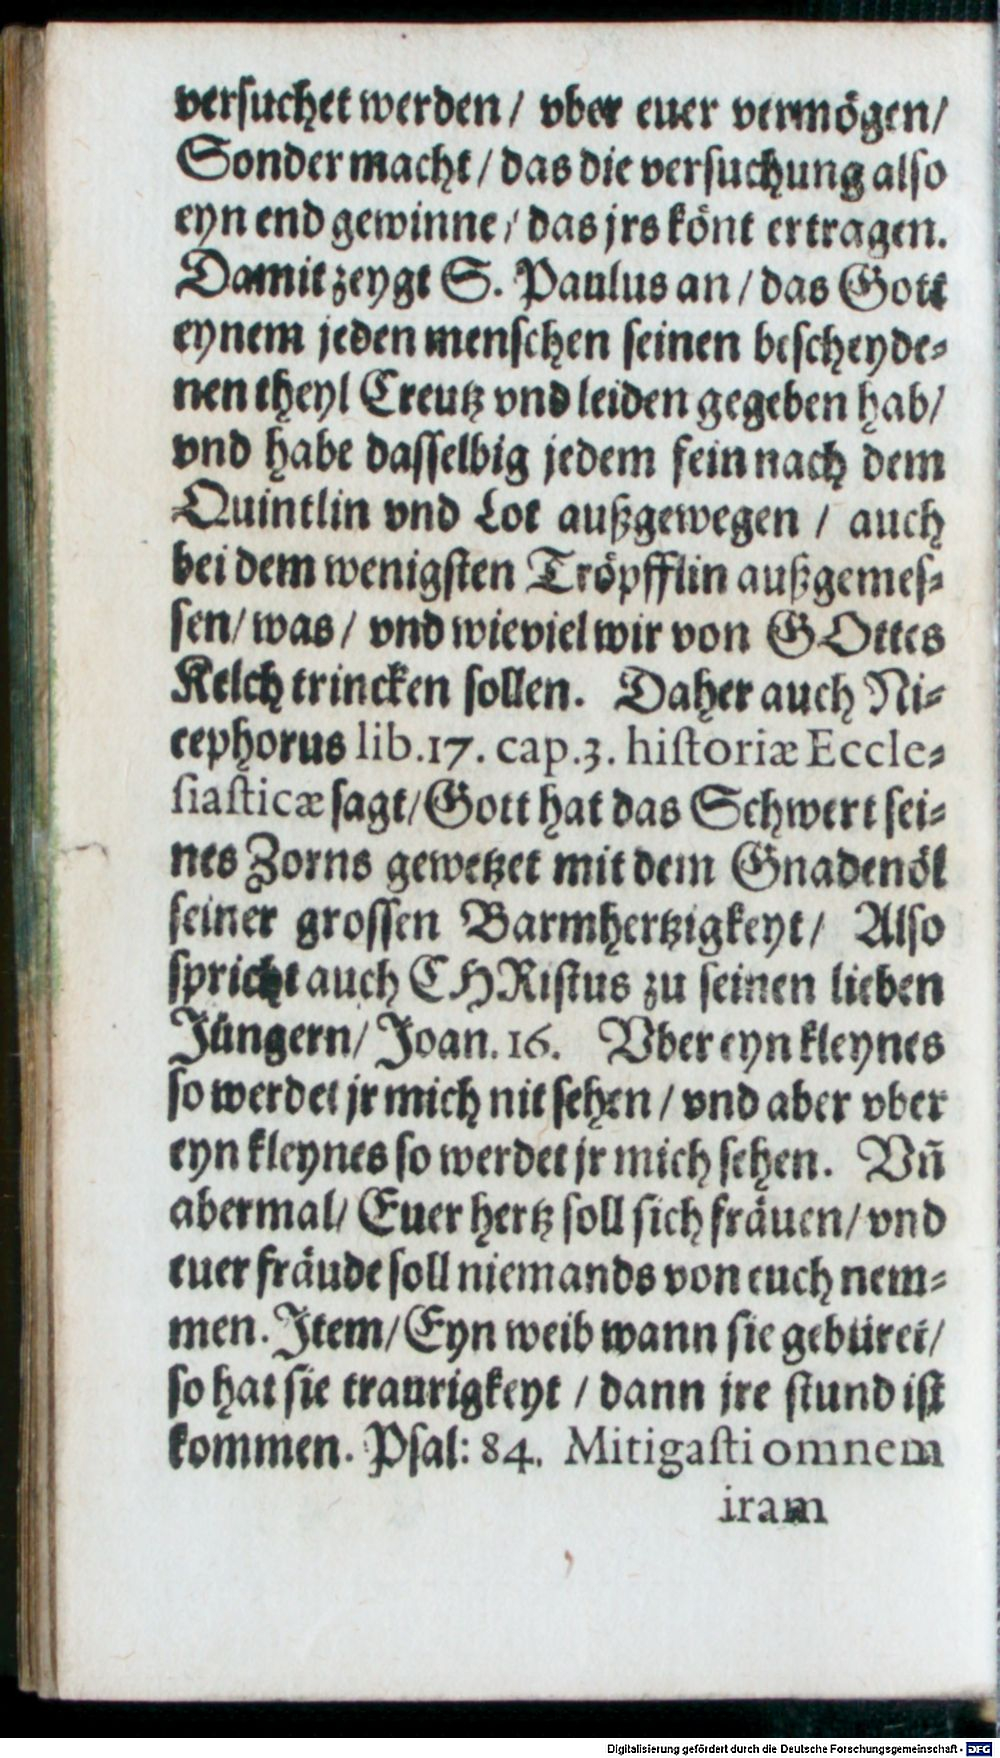 versuchet werden / vber euer vermögen /
Sonder macht / das die versuchung also
eyn end gewinne / das jrs könt ertragen.
Damit zeygt S. Paulus an / das Gott
eynem jeden menschen seinen bescheyde-
nen theyl Creutz vnd leiden gegeben hab /
vnd habe dasselbig jedem fein nach dem
Quintlin vnd Lot außgewegen / auch
bei dem wenigsten Tröpfflin außgemes-
sen / was / vnd wieviel wir von GOttes
Kelch trincken sollen. Daher auch Ni-
cephorus lib.17. cap.3. historiæ Eccle-
siasticæ sagt / Gott hat das Schwert sei-
nes Zorns gewetzet mit dem Gnadenöl
seiner grossen Barmhertzigkeyt / Also
spricht auch CHRistus zu seinen lieben
Jüngern / Joan. 16. Vber eyn kleynes
so werdet jr mich nit sehen / vnd aber vber
eyn kleynes so werdet jr mich sehen. Vñ
abermal / Euer hertz soll sich fräuen / vnd
euer fräude soll niemands von euch nem-
men. Item / Eyn weib wann sie gebüret /
so hat sie traurigkeyt / dann jre stund ist
kommen. Psal: 84. Mitigasti omnem
iram
Digitalisierung gefördert durch die Deutsche Forschungsgemeinschaft - DFG